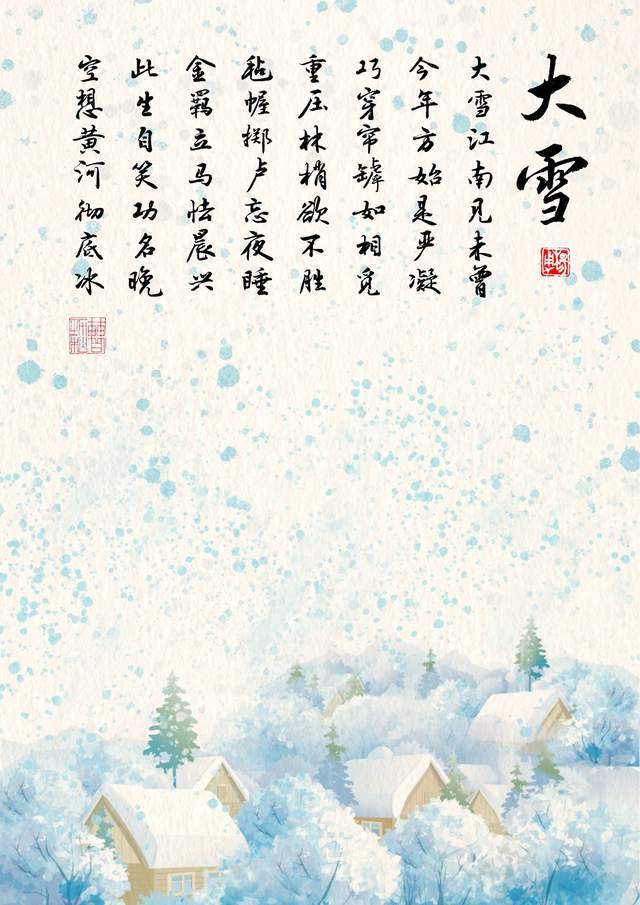 大雪
大雪江南见未曾
今年方始是严凝
巧穿帘罅如相觅
重压林梢欲不胜
毡幄掷卢忘夜睡
金羁立马怯晨兴
此生自笑功名晚
空想黄河彻底冰